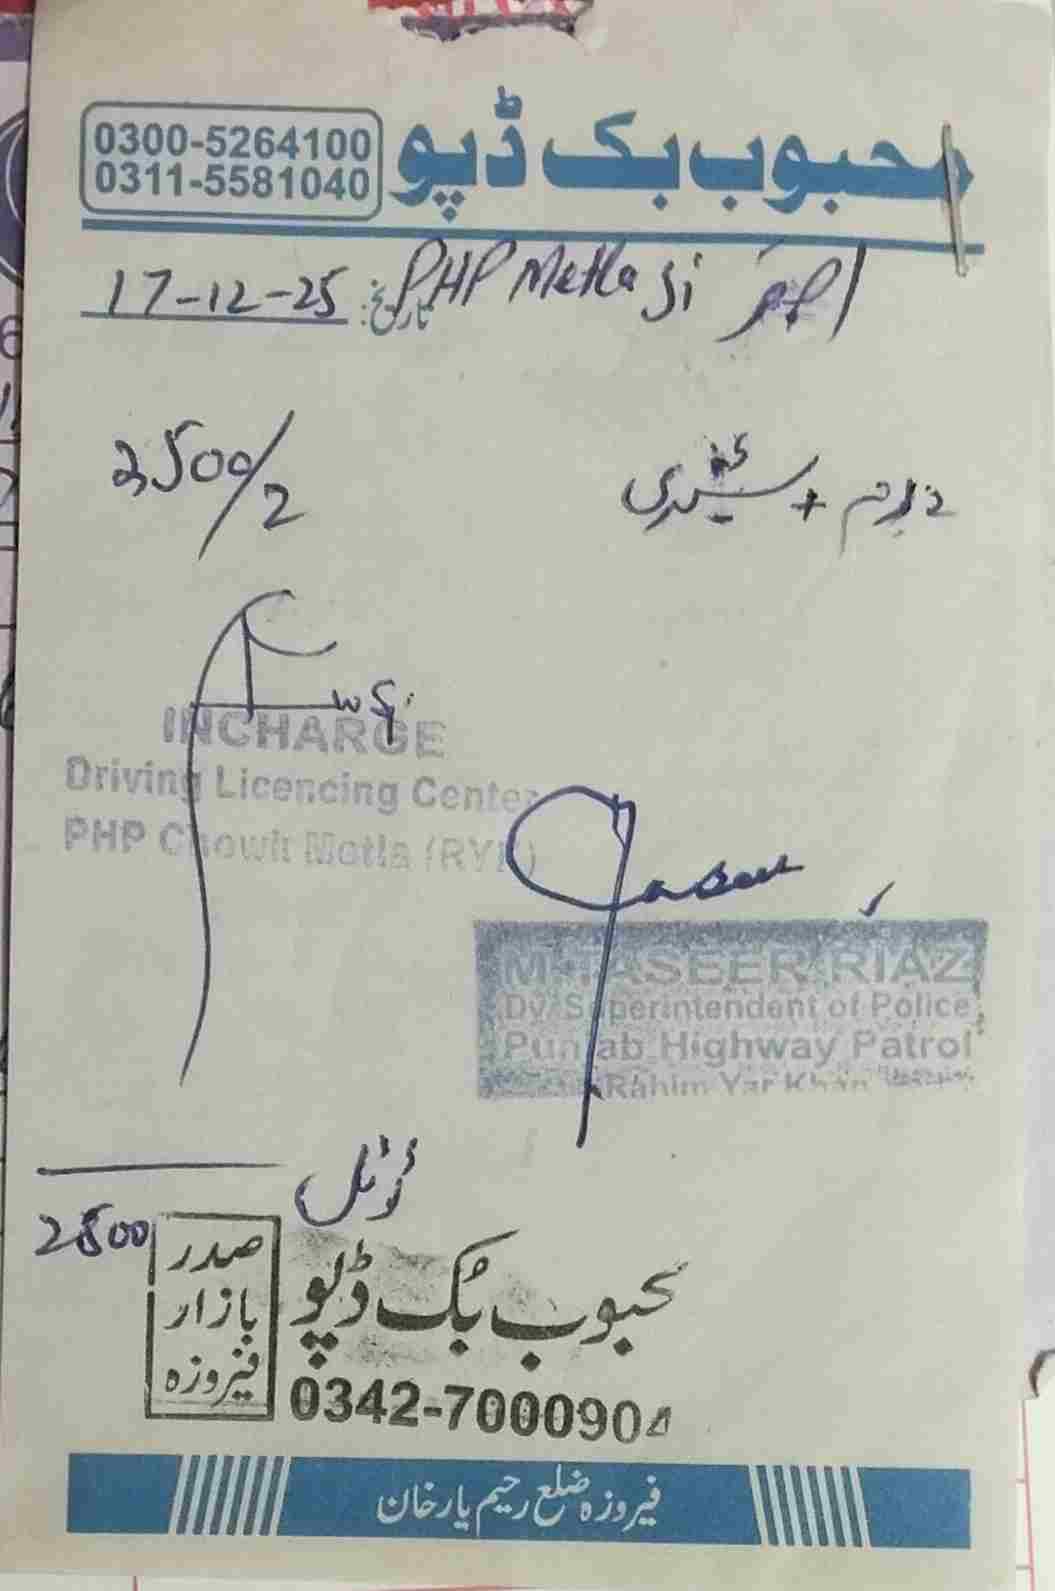 محبوب بک ڈپو
0300-5264100
0311-5581040
PHP Motla
تاریخ: 17-12-25
فارم + سٹیشنری
2500/2
INCHARGE
Driving Licencing Center
PHP Chowk Motla (RYK)
M. TASEER RIAZ
Dy. Superintendent of Police
Punjab Highway Patrol
Rahim Yar Khan
ٹوٹل
2500
محبوب بک ڈپو
صدر
بازار
فیروزہ
0342-7000904
فیروزہ ضلع رحیم یار خان